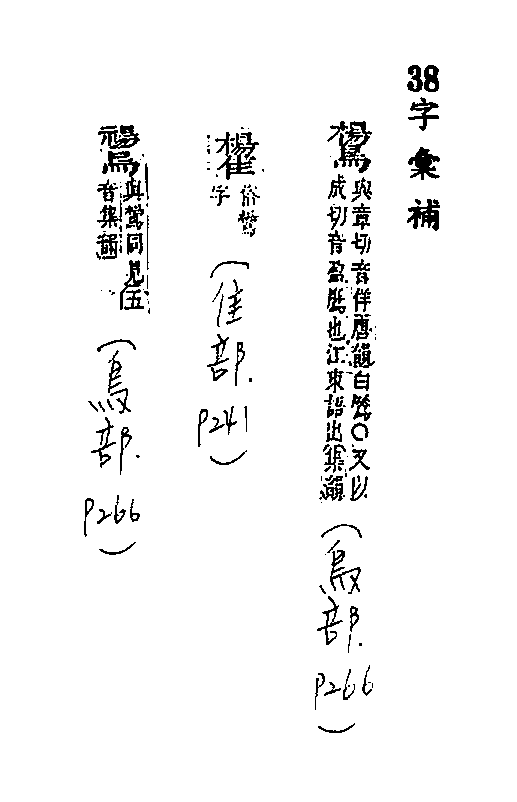 38字彙補
與章切音佯韻白〇又以
成切音盈也江東語出集韻
(鳥部.P266)
俗
字
(隹部.P241)
與同見五
音集韻
(鳥部.P266)